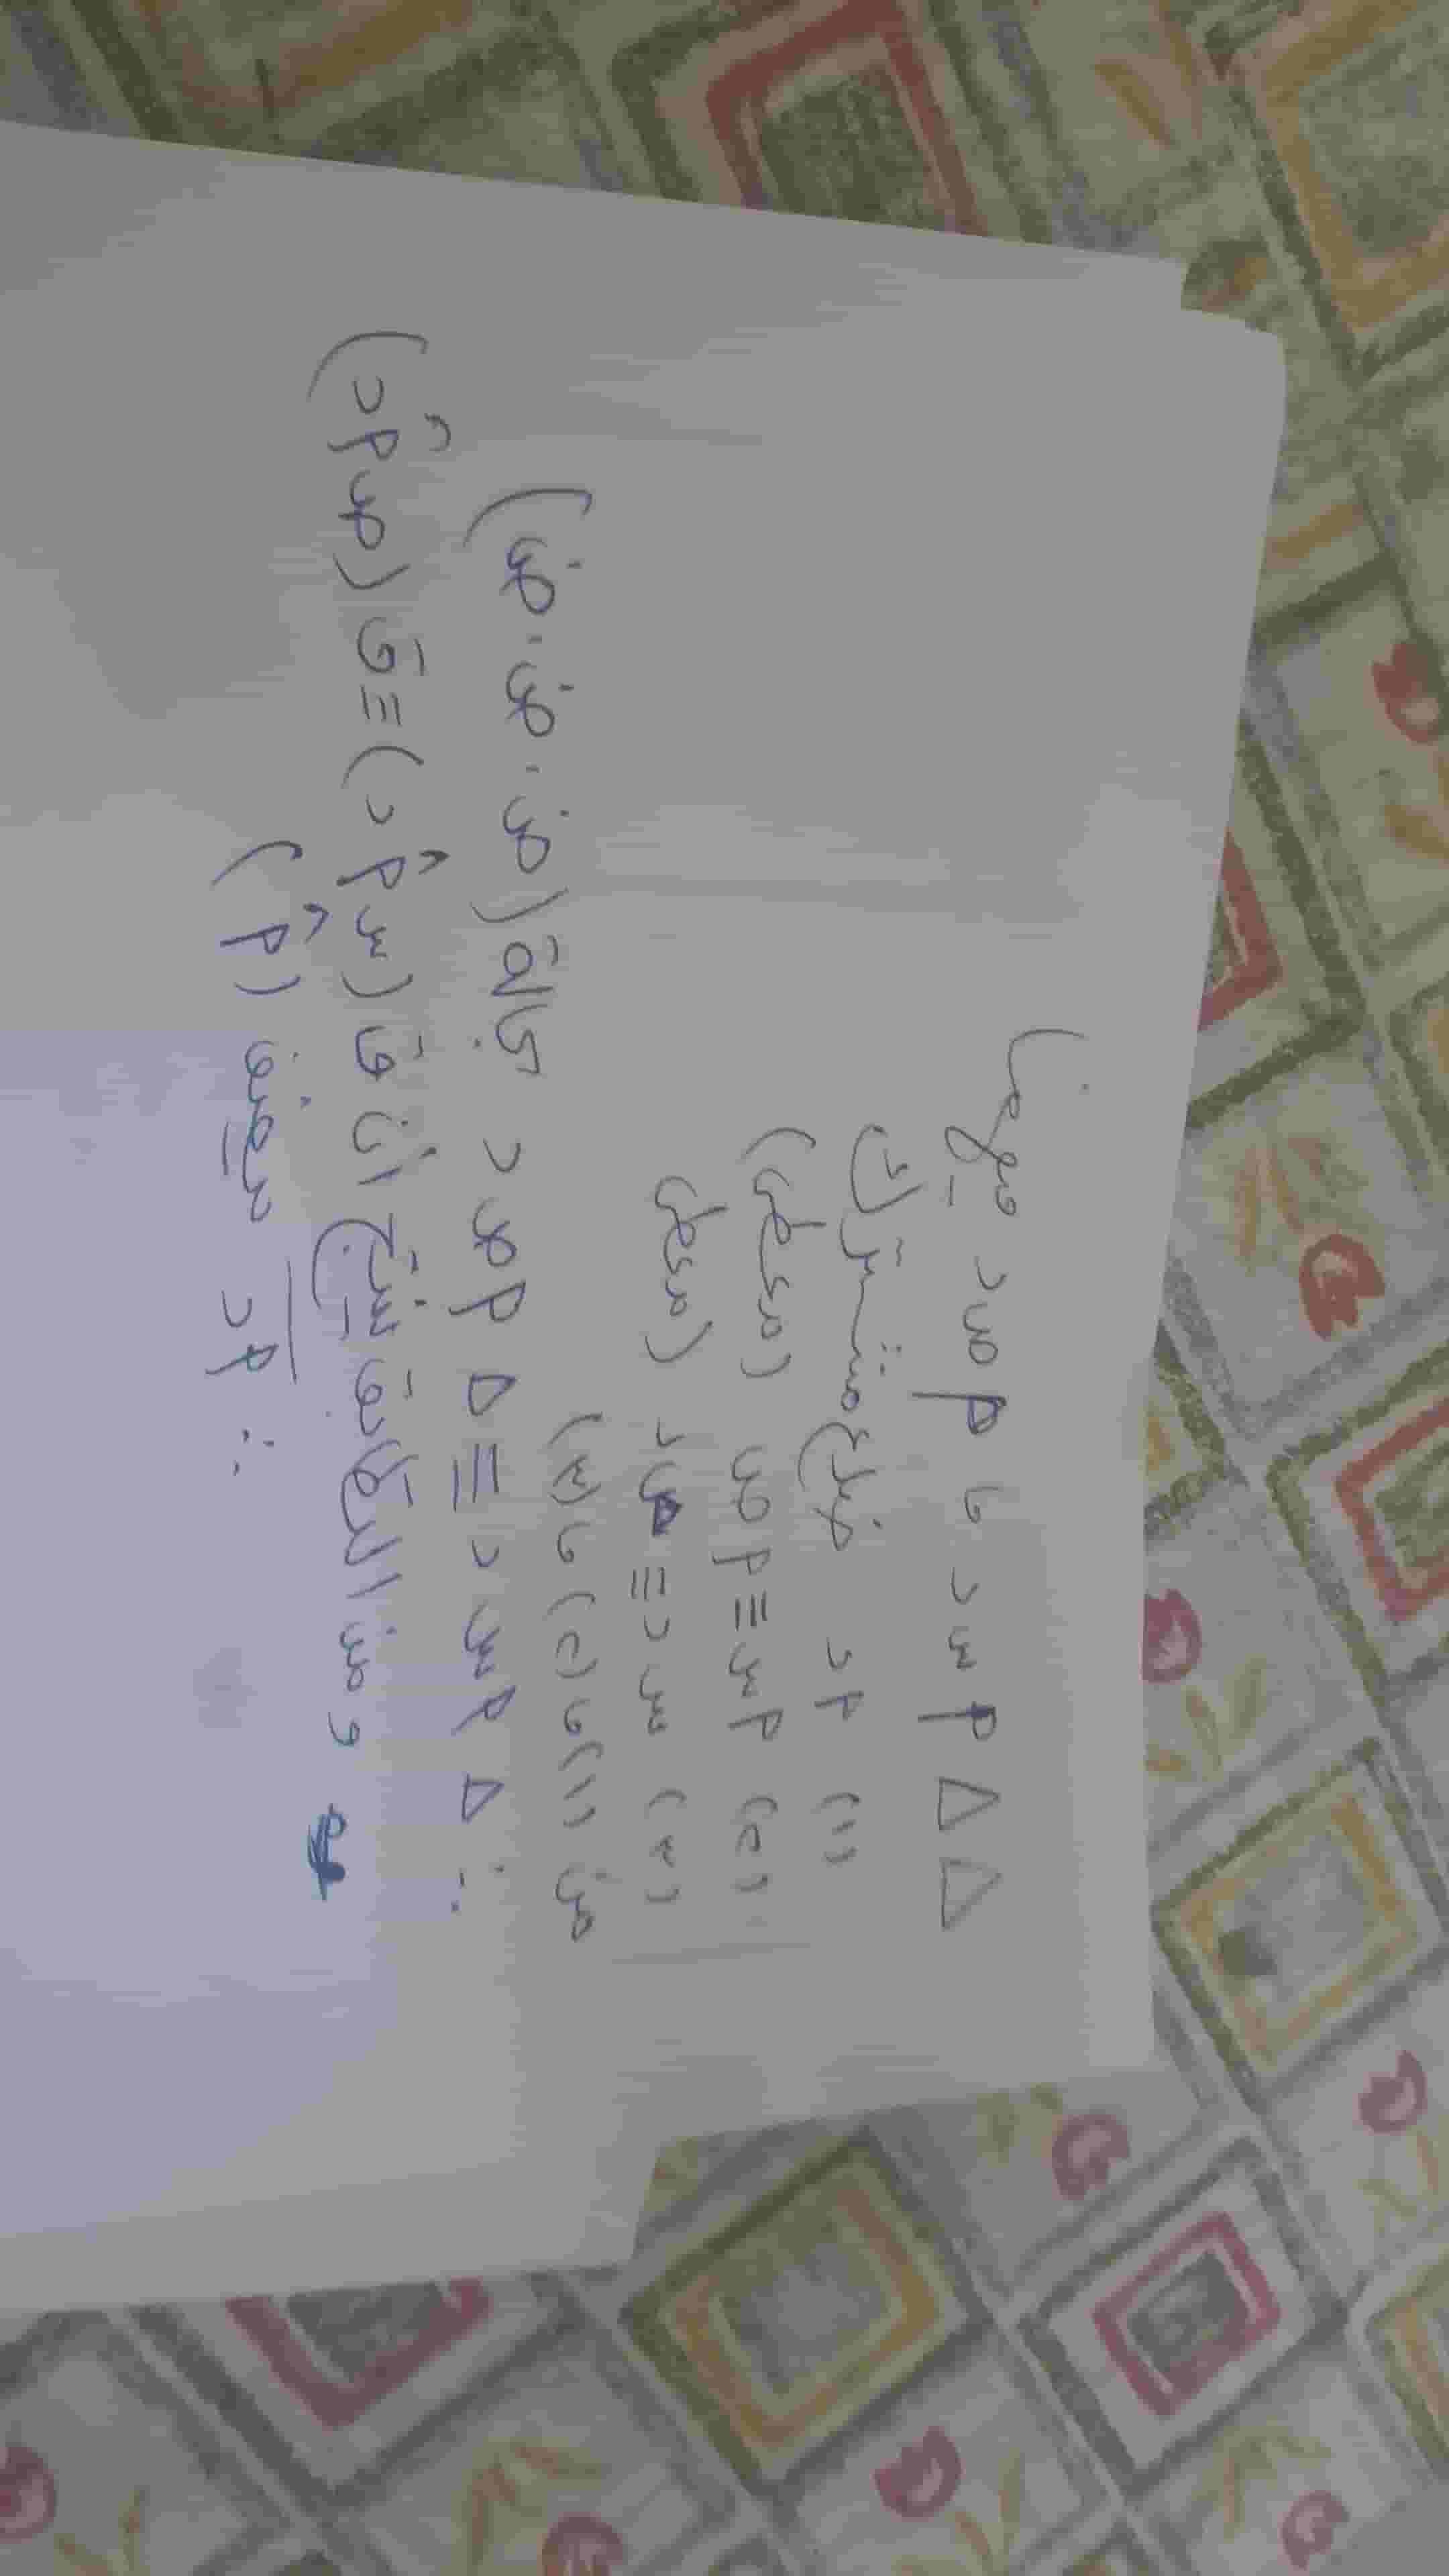 △△ أ س د ، أ ص د فيهما
(١) أ د ضلع مشترك
(٢) أ س ≡ أ ص (معطى)
(٣) س د ≡ ص د (معطى)
من (١) ، (٢) ، (٣)
∴ △ أ س د ≡ △ أ ص د حالة (ض . ض . ض)
و من التطابق ينتج ان ق (س أ̂ د) ≡ ق (ص أ̂ د)
∴ أ د ينصف (أ̂)